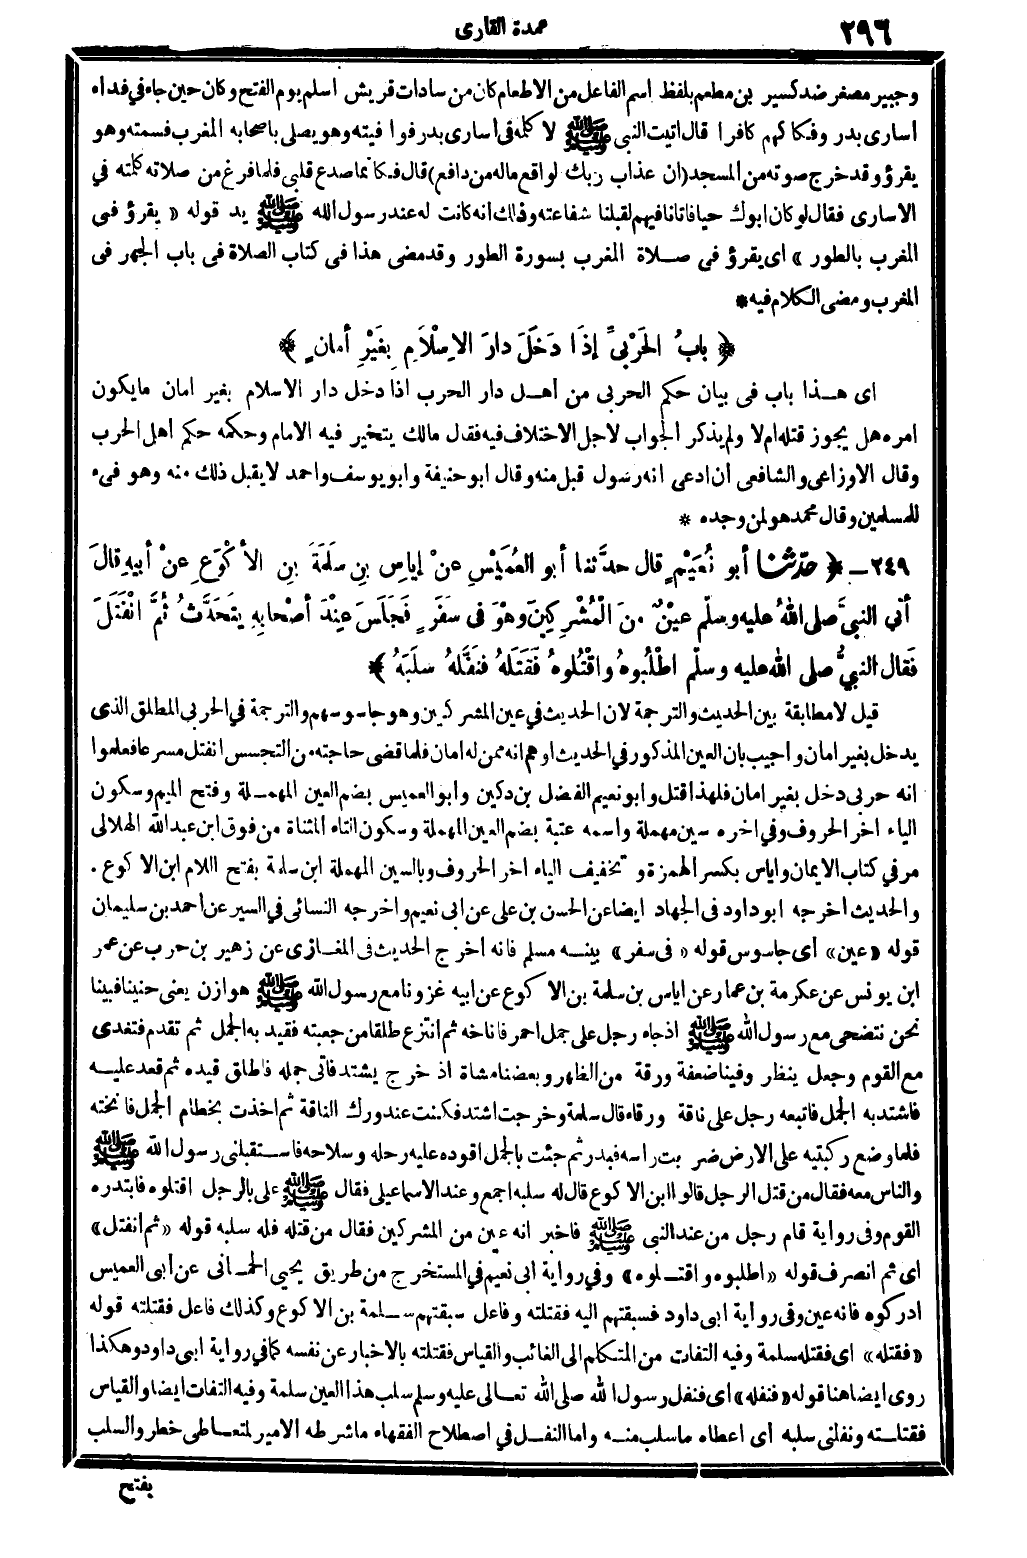 ٢٩٦
عمدة القارى
وجبير مصغر ضد كسير بن مطعم بلفظ اسم الفاعل من الاطعام كان من سادات قريش اسلم يوم الفتح وكان حين جاء في فداء
اسارى بدر وفكاكهم كافرا قال اتيت النبى ﷺ لا كله فى أسارى بدر فوا فيته وهو يصلى باصحابه المغرب فسمته وهو
يقرؤ وقد خرج صوته من المسجد (ان عذاب ربك لواقع ماله من دافع) قال فكانما صدع قلبى فلما فرغ من صلاته كلمته في
الاسارى فقال لو كان ابوك حيا فاتانا فيهم لقبلنا شفاعته وذلك انه كانت له عند رسول الله ﷺ يد قوله « يقرؤ فى
المغرب بالطور » اى يقرؤ فى صلاة المغرب بسورة الطور وقد مضى هذا فى كتاب الصلاة فى باب الجهر فى
المغرب ومضى الكلام فيه *
﴿ بابُ الحَرْبىِّ إذَا دَخَلَ دارَ الاِسْلاَمِ بِغَيْرِ أمانٍ ﴾
اى هذا باب فى بيان حكم الحربى من أهل دار الحرب اذا دخل دار الاسلام بغير امان مايكون
امره هل يجوز قتله ام لا ولم يذكر الجواب لاجل الاختلاف فيه فقال مالك يتخير فيه الامام وحكمه حكم أهل الحرب
وقال الاوزاعى والشافعى ان ادعى انه رسول قبل منه وقال ابو حنيفة وابو يوسف واحمد لا يقبل ذلك منه وهو فىء
للمسلمين وقال محمد هو لمن وجده *
٢٤٩ ـ ﴿ حَدَّثَنا أبو نُعَيْمٍ قال حدَّثنا أبو العُمَيْسِ عنْ إياسِ بنِ سلَمَةَ بنِ الأكْوَعِ عنْ أبيهِ قالَ
أتي النبيَّ صلى اللهُ عليه وسلّم عيْنٌ منَ الْمُشْرِكِينَ وهْوَ فى سفَرٍ فَجَلَسَ عِنْدَ أصْحابِهِ يتَحَدَّثُ ثُمَّ انْفَتَلَ
فَقال النبيُّ صلى الله عليه وسلّم اطْلُبُوهُ واقْتُلوهُ فَقَتَلَهُ فنَفَّلهُ سلَبَهُ ﴾
قيل لا مطابقة بين الحديث والترجمة لان الحديث في عين المشركين وهو جاسوسهم والترجمة في الحربى المطلق الذى
يدخل بغير امان واجيب بان العين المذكور في الحديث اوهم انه ممن له امان فلما قضى حاجته من التجسس انفتل مسرعا فعلموا
انه حربى دخل بغير امان فلهذا قتل وابو نعيم الفضل بن دكين وابو العميس بضم العين المهملة وفتح الميم وسكون
الياء اخر الحروف وفي اخره سين مهملة واسمه عتبة بضم العين المهملة وسكون التاء المثناة من فوق ابن عبد الله الهلالى
مر في كتاب الايمان واياس بكسر الهمزة و تخفيف الياء اخر الحروف وبالسين المهملة ابن سلمة بفتح اللام ابن الاكوع .
والحديث أخرجه ابو داود فى الجهاد ايضا عن الحسن بن على عن ابى نعيم واخرجه النسائى في السير عن أحمد بن سليمان
قوله « عين» أى جاسوس قوله « فى سفر » بينه مسلم فانه أخرج الحديث فى المغازى عن زهير بن حرب عن عمر
ابن يونس عن عكرمة بن عمار عن اياس بن سلمة بن الاكوع عن ابيه غزونا مع رسول الله ﷺ هوازن يعنى حنينا فبينا
نحن نتضحى مع رسول الله ﷺ اذ جاء رجل على جمل احمر فاناخه ثم انتزع طلقا من جعبته فقيد به الجمل ثم تقدم فتغدى
مع القوم وجعل ينظر وفينا ضعفة ورقة من الظهر وبعضنا مشاة اذ خرج يشتد فاتى جمله فاطلق قيده ثم قعد عليه
فاشتد به الجمل فاتبعه رجل على ناقة ورقاء قال سلمة وخرجت اشتد فكنت عند ورك الناقة ثم اخذت بخطام الجمل فانخته
فلما وضع ركبتيه على الارض ضربت راسه فبدر ثم جئت بالجمل اقوده عليه رحله وسلاحه فاستقبلنى رسول الله ﷺ
والناس معه فقال من قتل الرجل قالوا ابن الاكوع قال له سلبه اجمع وعند الاسماعيلى فقال ﷺ على بالرجل اقتلوه فابتدره
القوم وفى رواية قام رجل من عند النبى ﷺ فاخبر انه عين من المشركين فقال من قتله فله سلبه قوله « ثم انفتل »
اى ثم انصرف قوله « اطلبوه واقتلوه » وفي رواية ابى نعيم في المستخرج من طريق يحيى الحمانى عن أبى العميس
ادركوه فانه عين وفى رواية ابى داود فسبقتهم اليه فقتلته وفاعل سبقتهم سلمة بن الاكوع وكذلك فاعل فقتلته قوله
« فقتله » اى فقتله سلمة وفيه التفات من المتكلم الى الغائب والقياس فقتلته بالاخبار عن نفسه كما في رواية ابى داود وهكذا
روى ايضا هنا قوله « فنفله » اى فنفل رسول الله صلى الله تعالى عليه وسلم سلب هذا العين سلمة وفيه التفات ايضا والقياس
فقتلته ونفلنى سلبه أى اعطاه ماسلب منه واما النفل في اصطلاح الفقهاء ما شرطه الامير لمتعاطى خطر والسلب
بفتح